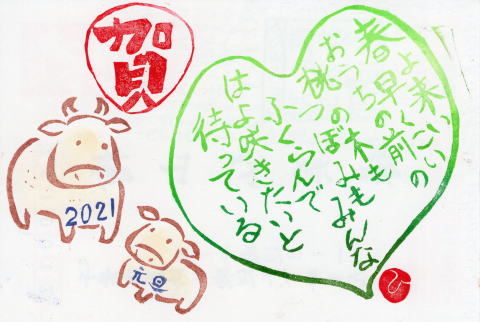 賀
春よ来い
早くこい
おうちの前の
桃の木も
つぼみもみんな
ふくらんで
はよ咲きたいと
待っている
ひ
2021
元旦